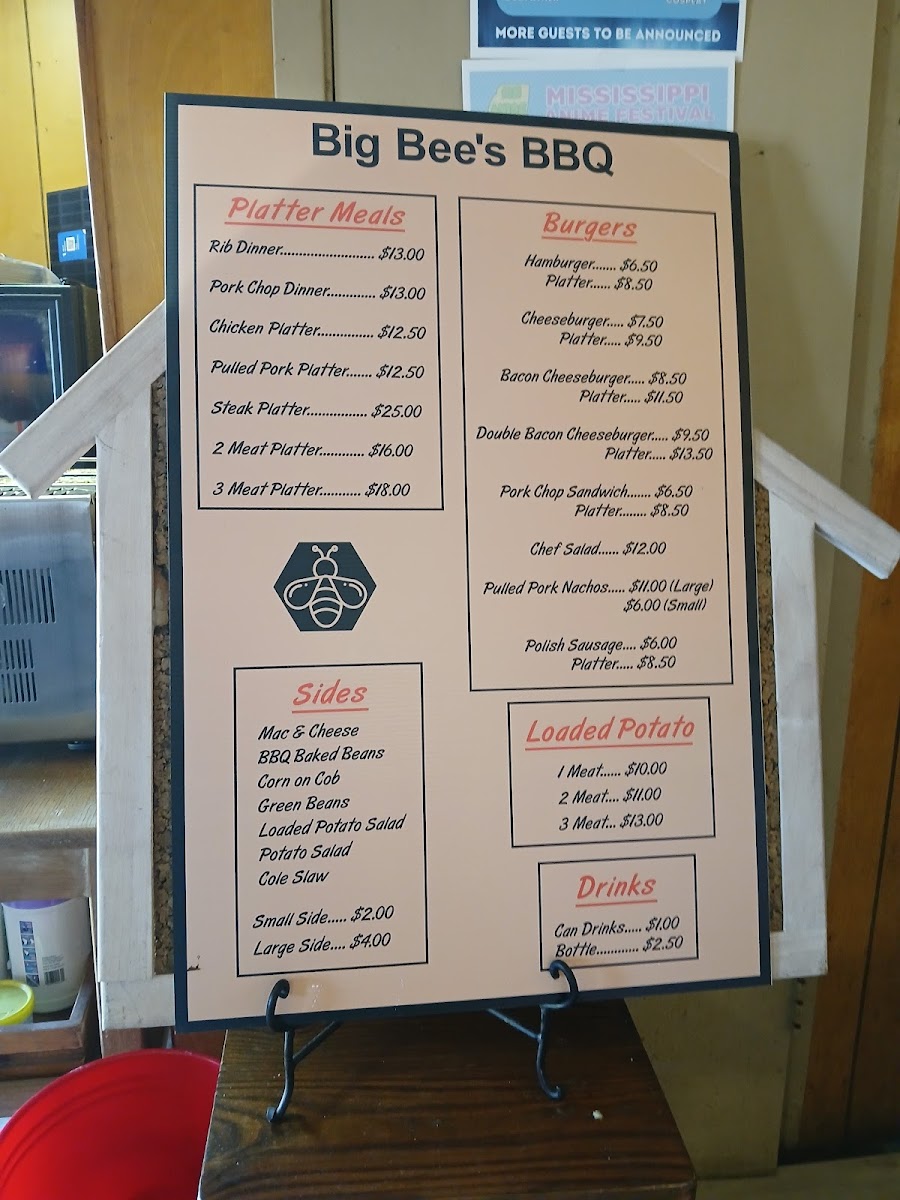 MORE GUESTS TO BE ANNOUNCED
MISSISSIPPI
ANIME FESTIVAL
Big Bee's BBQ
Platter Meals
Rib Dinner.......................... $13.00
Pork Chop Dinner............. $13.00
Chicken Platter............... $12.50
Pulled Pork Platter....... $12.50
Steak Platter................ $25.00
2 Meat Platter............ $16.00
3 Meat Platter........... $18.00
Sides
Mac & Cheese
BBQ Baked Beans
Corn on Cob
Green Beans
Loaded Potato Salad
Potato Salad
Cole Slaw
Small Side..... $2.00
Large Side.... $4.00
Burgers
Hamburger....... $6.50
Platter...... $8.50
Cheeseburger..... $7.50
Platter..... $9.50
Bacon Cheeseburger..... $8.50
Platter..... $11.50
Double Bacon Cheeseburger..... $9.50
Platter..... $13.50
Pork Chop Sandwich....... $6.50
Platter........ $8.50
Chef Salad...... $12.00
Pulled Pork Nachos..... $11.00 (Large)
$6.00 (Small)
Polish Sausage.... $6.00
Platter..... $8.50
Loaded Potato
1 Meat...... $10.00
2 Meat.... $11.00
3 Meat... $13.00
Drinks
Can Drinks..... $1.00
Bottle............ $2.50